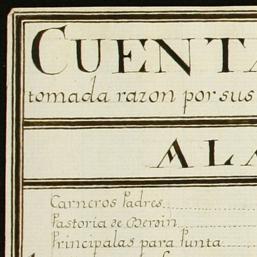 CUENTA
tomada razon por sus
ALA
Carneros Padres
Pastoria de
Principalas para Punta